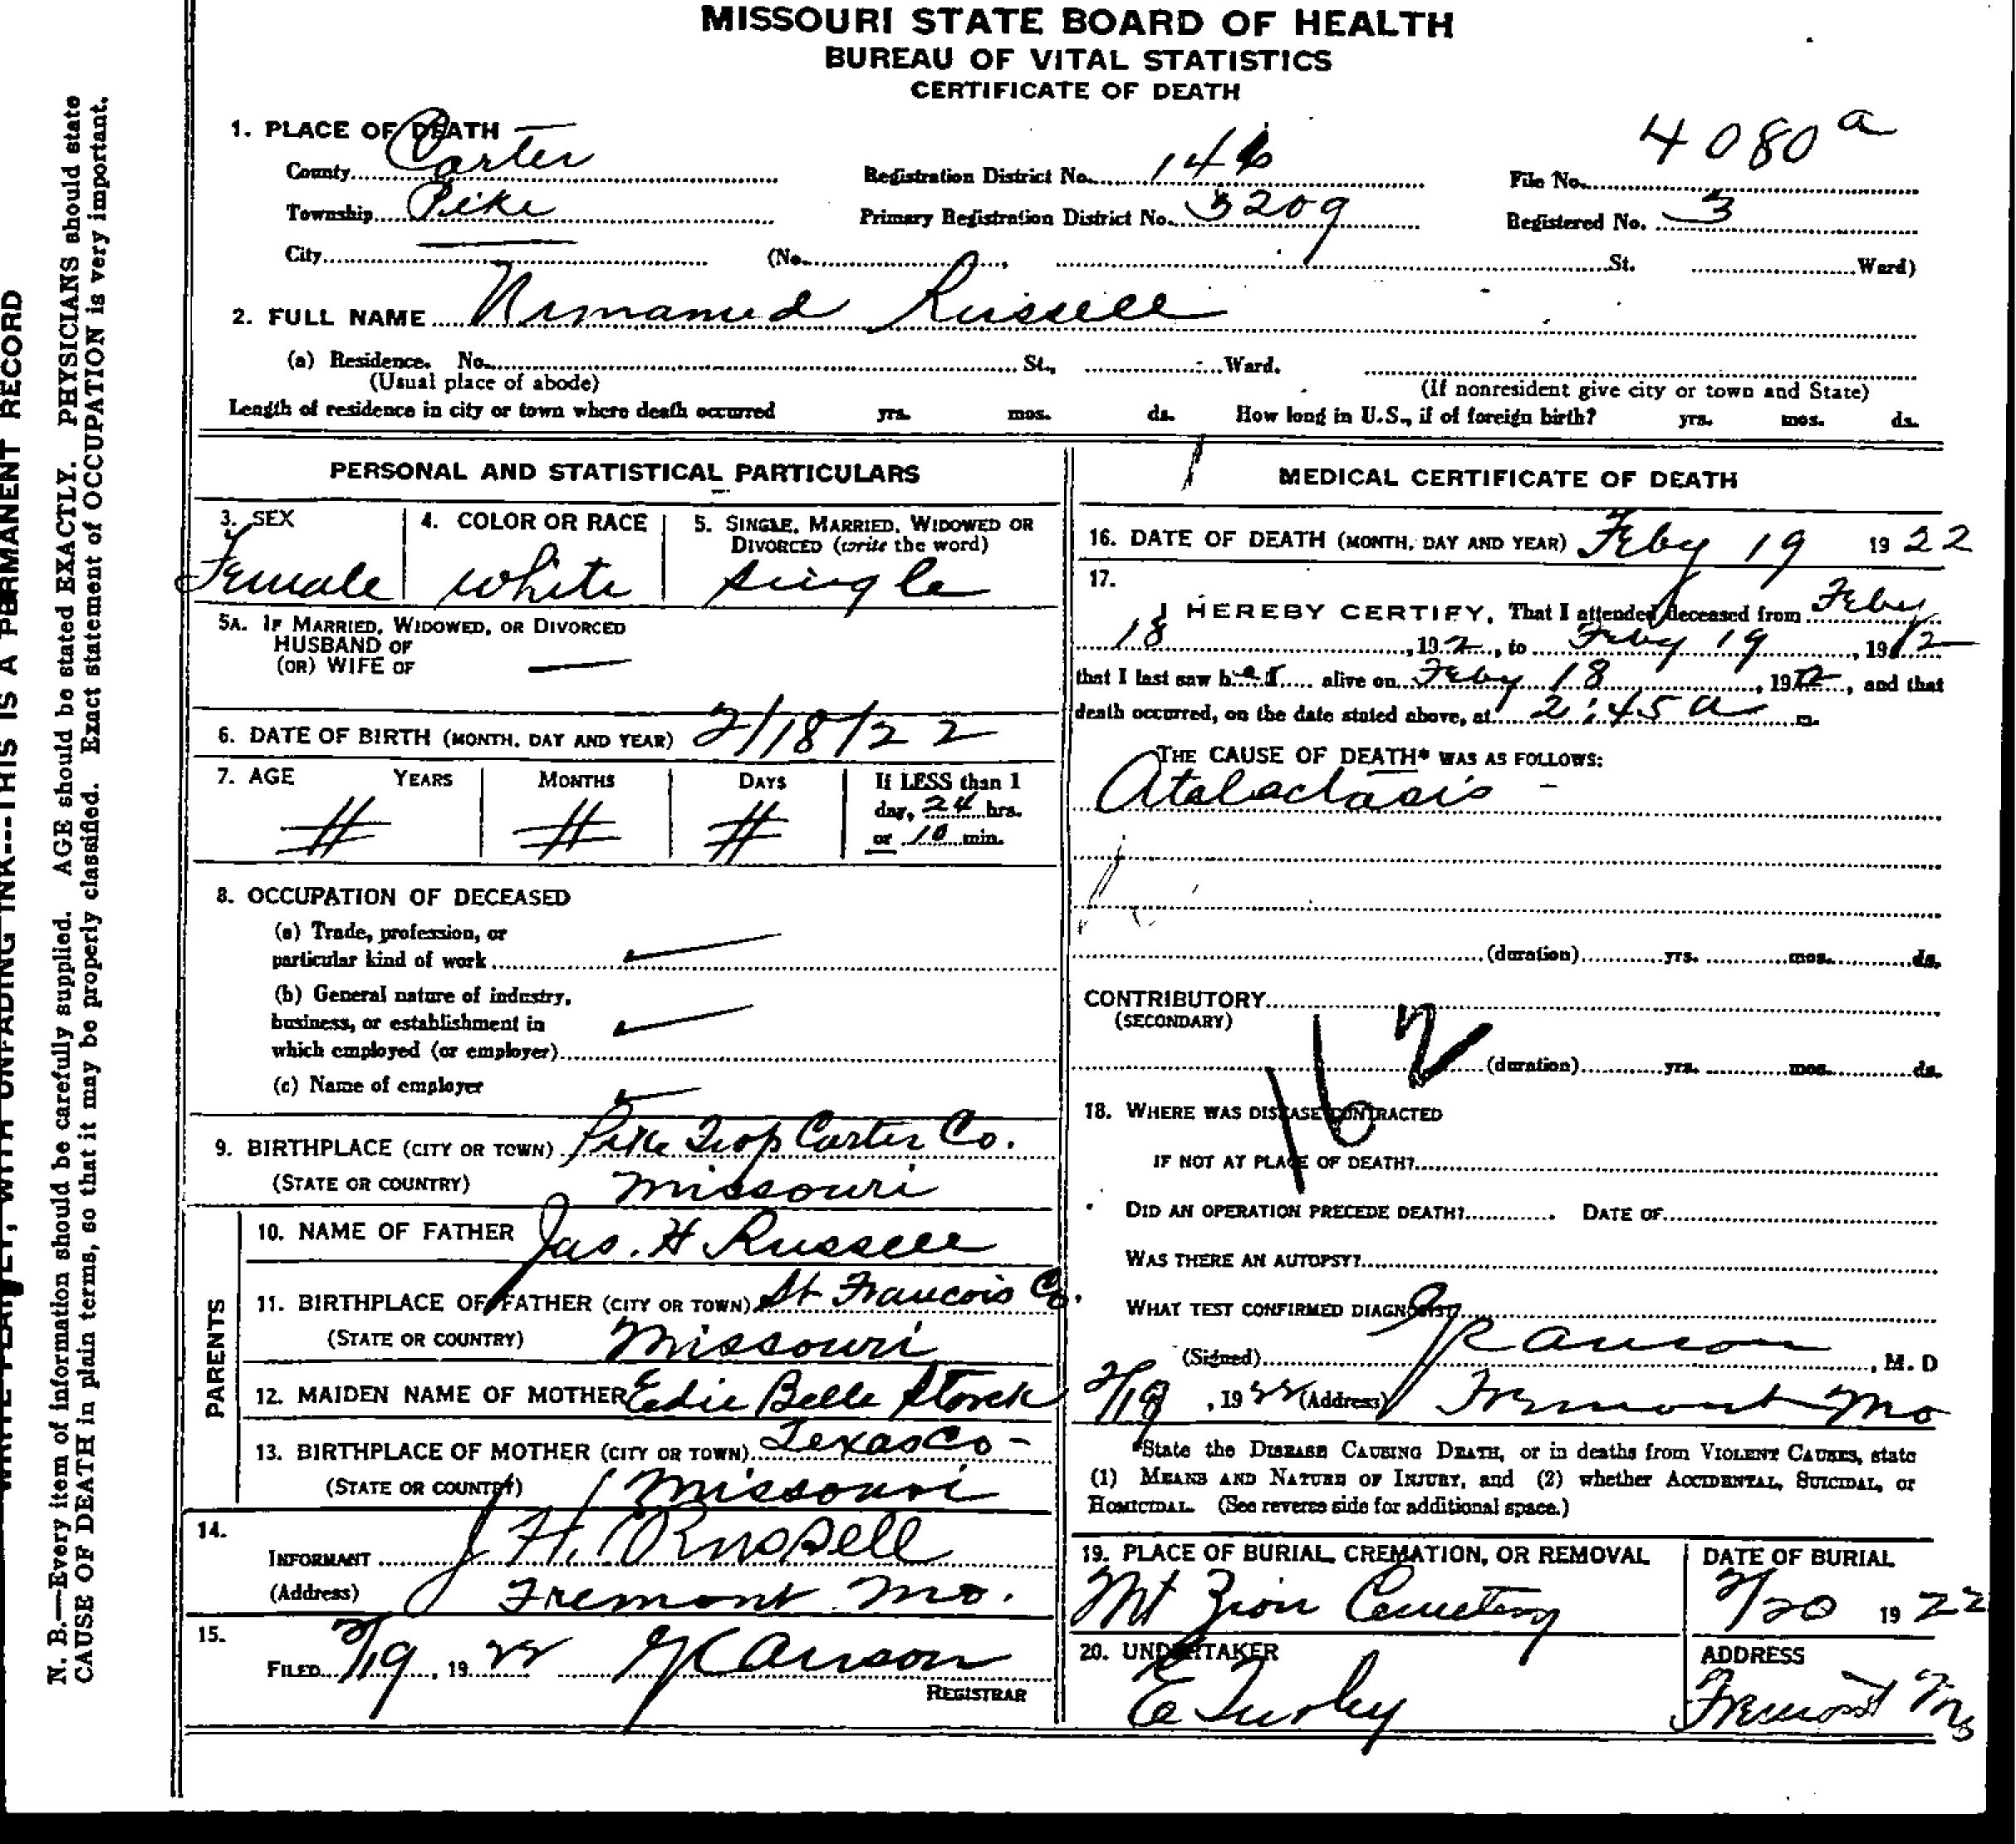 MISSOURI STATE BOARD OF HEALTH
BUREAU OF VITAL STATISTICS
CERTIFICATE OF DEATH
1. PLACE OF DEATH
County Carter Registration District No. 146 File No. 4080 a
Township Pike Primary Registration District No. 3209 Registered No. 3
City (No. , St. Ward)
2. FULL NAME Unnamed Russell
(a) Residence. No. St., Ward.
(Usual place of abode) (If nonresident give city or town and State)
Length of residence in city or town where death occurred yrs. mos. ds. How long in U.S., if of foreign birth? yrs. mos. ds.
PERSONAL AND STATISTICAL PARTICULARS
3. SEX 4. COLOR OR RACE 5. SINGLE, MARRIED, WIDOWED OR
DIVORCED (write the word)
Female white single
5A. IF MARRIED, WIDOWED, OR DIVORCED
HUSBAND OF
(OR) WIFE OF —
6. DATE OF BIRTH (MONTH, DAY AND YEAR) 2/18/22
7. AGE YEARS MONTHS DAYS If LESS than 1
day, 24 hrs.
or 10 min.
8. OCCUPATION OF DECEASED
(a) Trade, profession, or
particular kind of work
(b) General nature of industry,
business, or establishment in
which employed (or employer)
(c) Name of employer
9. BIRTHPLACE (CITY OR TOWN) Pike Twp Carter Co.
(STATE OR COUNTRY) Missouri
PARENTS
10. NAME OF FATHER Jas. H Russell
11. BIRTHPLACE OF FATHER (CITY OR TOWN) St Francois Co.
(STATE OR COUNTRY) Missouri
12. MAIDEN NAME OF MOTHER Edie Belle Storck
13. BIRTHPLACE OF MOTHER (CITY OR TOWN) Texas Co –
(STATE OR COUNTRY) Missouri
14.
INFORMANT J H. Russell
(Address) Fremont Mo.
15.
FILED 2/19, 1922
REGISTRAR
MEDICAL CERTIFICATE OF DEATH
16. DATE OF DEATH (MONTH, DAY AND YEAR) Feby 19 1922
17.
I HEREBY CERTIFY, That I attended deceased from Feby
18, 192, to Feby 19, 19
that I last saw her alive on Feby 18, 19, and that
death occurred, on the date stated above, at 2:45 a m.
THE CAUSE OF DEATH* WAS AS FOLLOWS:
Atalactasis –
(duration) yrs. mos. ds.
CONTRIBUTORY
(SECONDARY)
162
(duration) yrs. mos. ds.
18. WHERE WAS DISEASE CONTRACTED
IF NOT AT PLACE OF DEATH?
DID AN OPERATION PRECEDE DEATH? DATE OF
WAS THERE AN AUTOPSY?
WHAT TEST CONFIRMED DIAGNOSIS?
(Signed) , M. D
2/19, 1922 (Address) Fremont Mo
*State the DISEASE CAUSING DEATH, or in deaths from VIOLENT CAUSES, state
(1) MEANS AND NATURE OF INJURY, and (2) whether ACCIDENTAL, SUICIDAL, or
HOMICIDAL. (See reverse side for additional space.)
19. PLACE OF BURIAL, CREMATION, OR REMOVAL DATE OF BURIAL
Mt Zion Cemetery 2/20 1922
20. UNDERTAKER ADDRESS
E Turley Fremont Mo
N. B.—Every item of information should be carefully supplied. AGE should be stated EXACTLY. PHYSICIANS should state
CAUSE OF DEATH in plain terms, so that it may be properly classified. Exact statement of OCCUPATION is very important.
WITH UNFADING INK---THIS IS A PERMANENT RECORD